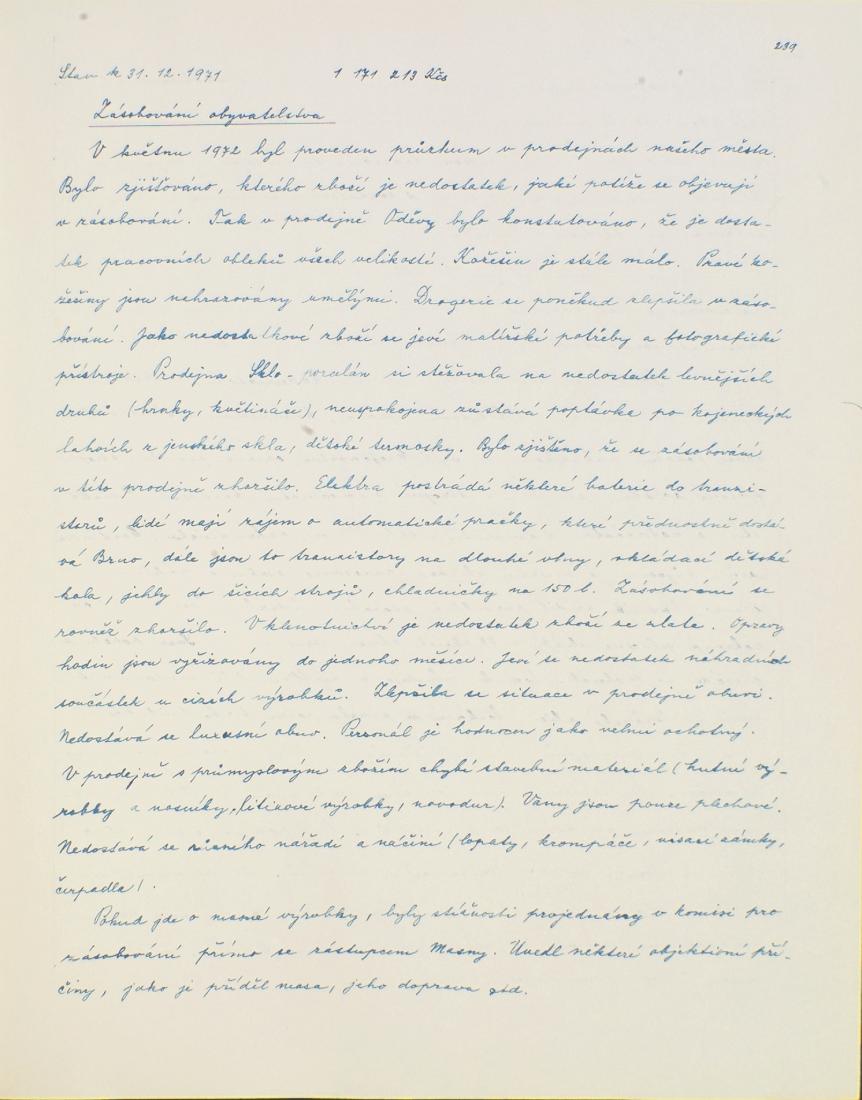 239
Stav k 31. 12. 1971 1 171 213 Kčs
Zásobování obyvatelstva
V květnu 1972 byl proveden průzkum v prodejnách našeho města.
Bylo zjišťováno, kterého zboží je nedostatek, jaké potíže se objevují
v zásobování. Tak v prodejně Oděvy bylo konstatováno, že je dosta-
tek pracovních obleků všech velikostí. Kožešin je stále málo. Pravé ko-
žešiny jsou nahrazovány umělými. Drogerie se poněkud zlepšila v záso-
bování. Jako nedostatkové zboží se jeví malířské potřeby a fotografické
přístroje. Prodejna Sklo-porcelán si stěžovala na nedostatek levnějších
druhů (hrnky, květináče), neuspokojena zůstává poptávka po kojeneckých
lahvích z jenského skla, dětské termosky. Bylo zjištěno, že se zásobování
v této prodejně zhoršilo. Elektra postrádá některé baterie do tranzi-
storů, lidé mají zájem o automatické pračky, které přednostně dostá-
vá Brno, dále jsou to tranzistory na dlouhé vlny, skládací dětská
kola, jehly do šicích strojů, chladničky na 150 l. Zásobování se
rovněž zhoršilo. V klenotnictví je nedostatek zboží ze zlata. Opravy
hodin jsou vyřizovány do jednoho měsíce. Jeví se nedostatek náhradních
součástek u cizích výrobků. Zlepšila se situace v prodejně obuvi.
Nedostává se luxusní obuv. Personál je hodnocen jako velmi ochotný.
V prodejně s průmyslovým zbožím chybí stavební materiál (hutné vý-
robky a nosníky, litinové výrobky, novodur). Vany jsou pouze plechové.
Nedostává se různého nářadí a náčiní (lopaty, krompáče, visací zámky,
čerpadla).
Pokud jde o masné výrobky, byly stížnosti projednány v komisi pro
zásobování přímo se zástupcem Masny. Uvedl některé objektivní pří-
činy, jako je příděl masa, jeho doprava atd.